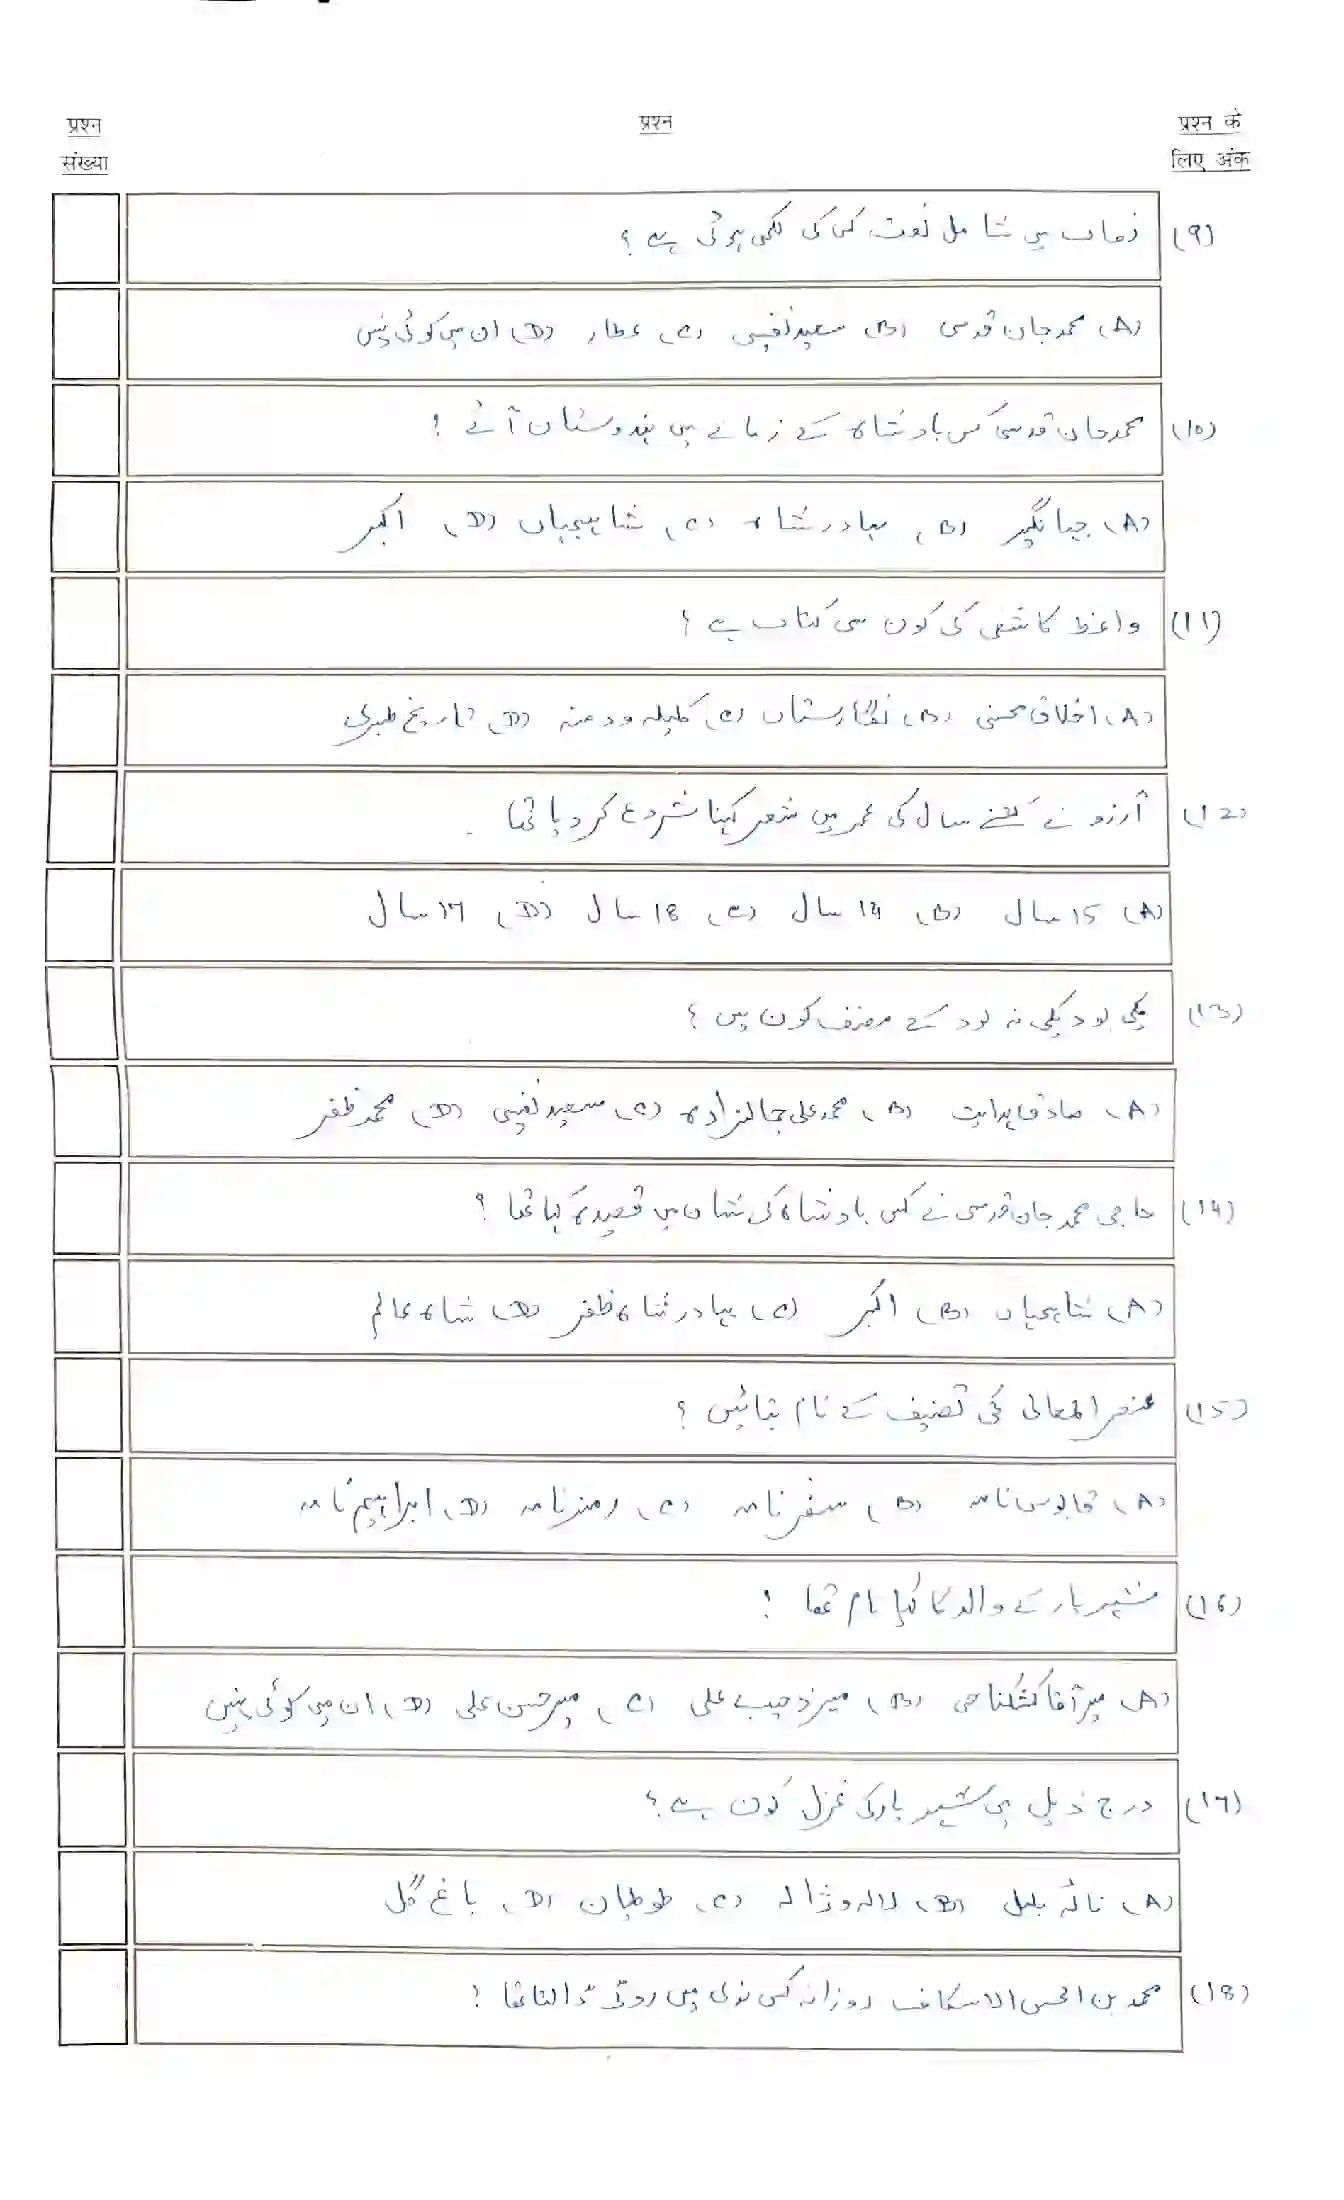 प्रश्न संख्या
प्रश्न
प्रश्न के लिए अंक
(9) نصاب میں شامل نعت کس کی لکھی ہوئی ہے؟
(A) محمد جان قدسی (B) سعید نفیسی (C) عطار (D) ان میں کوئی نہیں
(10) محمد جان قدسی کس بادشاہ کے زمانے میں ہندوستان آئے؟
(A) جہانگیر (B) بہادر شاہ (C) شاہجہاں (D) اکبر
(11) واعظ کاشفی کی کون سی کتاب ہے؟
(A) اخلاق محسنی (B) نگارستان (C) کلیلہ ودمنہ (D) تاریخ طبری
(12) آرزو نے کتنے سال کی عمر میں شعر کہنا شروع کر دیا تھا۔
(A) 15 سال (B) 14 سال (C) 18 سال (D) 17 سال
(13) یکی بود یکی نہ بود کے مصنف کون ہیں؟
(A) صادق ہدایت (B) محمد علی جمالزادہ (C) سعید نفیسی (D) محمد ظفر
(14) حاجی محمد جان قدسی نے کس بادشاہ کی شان میں قصیدہ کہا تھا؟
(A) شاہجہاں (B) اکبر (C) بہادر شاہ ظفر (D) شاہ عالم
(15) عنصر المعالی کی تصنیف کے نام بتائیں؟
(A) قابوس نامہ (B) سفرنامہ (C) رمزنامہ (D) ابراہیم نامہ
(16) شہریار کے والد کا کیا نام تھا؟
(A) میر آقا خشکنابی (B) میر نجیب علی (C) میر حسن علی (D) ان میں کوئی نہیں
(17) درج ذیل میں شہریار کی غزل کون ہے؟
(A) نالہ بلبل (B) لالہ و ژالہ (C) طوطیان (D) باغ گل
(18) محمد بن الحسن الاسکاف روزانہ کس ندی میں روٹی ڈالتا تھا؟